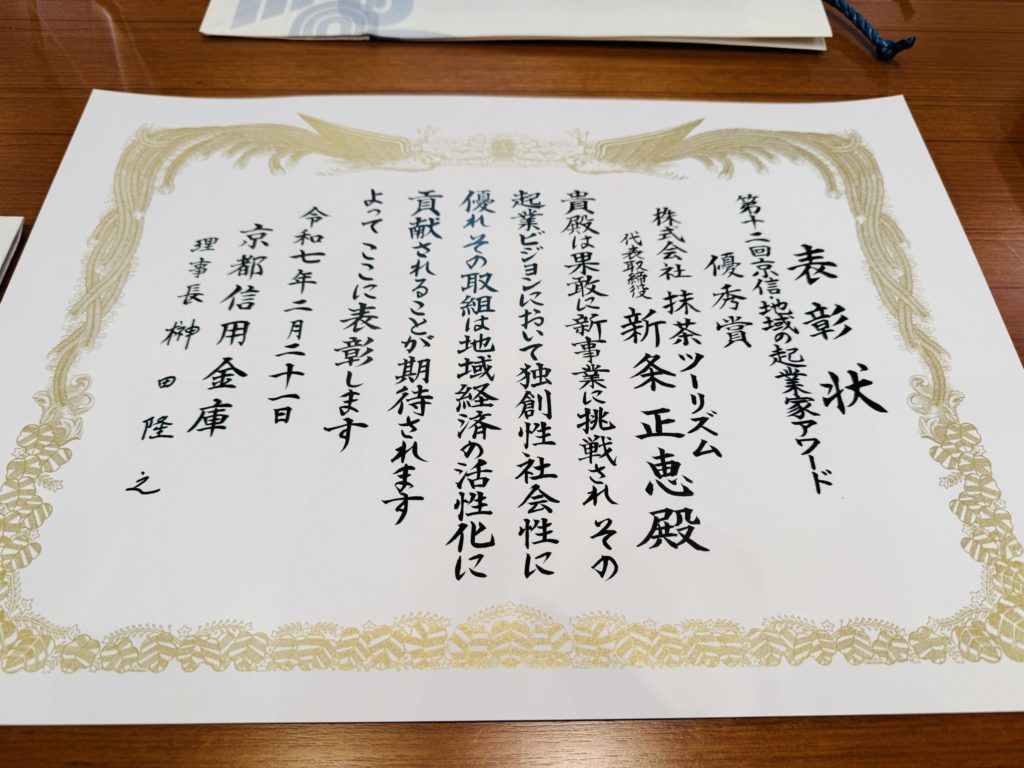 表彰状
第十二回京信・地域の起業家アワード
優秀賞
株式会社 抹茶ツーリズム
代表取締役 新条正恵殿
貴殿は果敢に新事業に挑戦され その
起業ビジョンにおいて独創性 社会性に
優れ その取組は地域経済の活性化に
貢献されることが期待されます
よって ここに表彰します
令和七年二月二十一日
京都信用金庫
理事長 榊田隆之